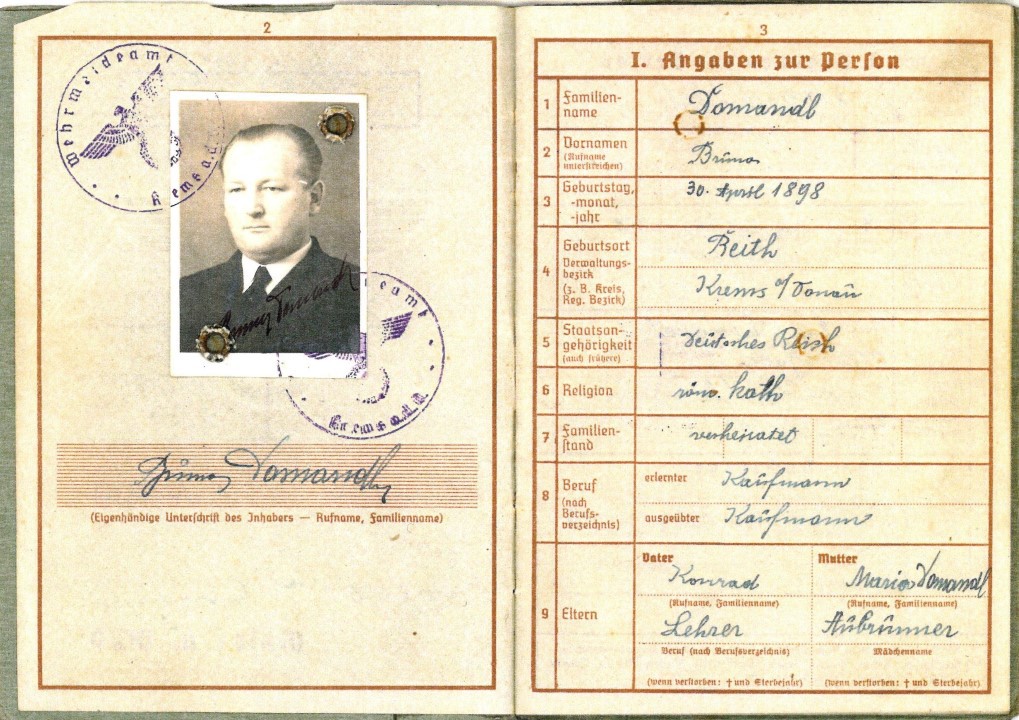 2
Wehrmeldeamt
Krems a.d.
Bruno Domandl
eldeamt
Krems a.d.D.
Bruno Domandl
(Eigenhändige Unterschrift des Inhabers — Rufname, Familienname)
3
I. Angaben zur Person
1 Familien-
name
Domandl
2 Vornamen
(Rufname
unterstreichen)
Bruno
3 Geburtstag,
-monat,
-jahr
30. April 1898
4 Geburtsort
Verwaltungs-
bezirk
(z. B. Kreis,
Reg. Bezirk)
Reith
Krems a/Donau
5 Staatsan-
gehörigkeit
(auch frühere)
Deutsches Reich
6 Religion
röm. kath
7 Familien-
stand
verheiratet
8 Beruf
(nach
Berufs-
verzeichnis)
erlernter Kaufmann
ausgeübter Kaufmann
9 Eltern
Vater Mutter
Konrad Maria Domandl
(Rufname, Familienname) (Rufname, Familienname)
Lehrer Aubrunner
Beruf (nach Berufsverzeichnis) Mädchenname
(wenn verstorben: † und Sterbejahr) (wenn verstorben: † und Sterbejahr)